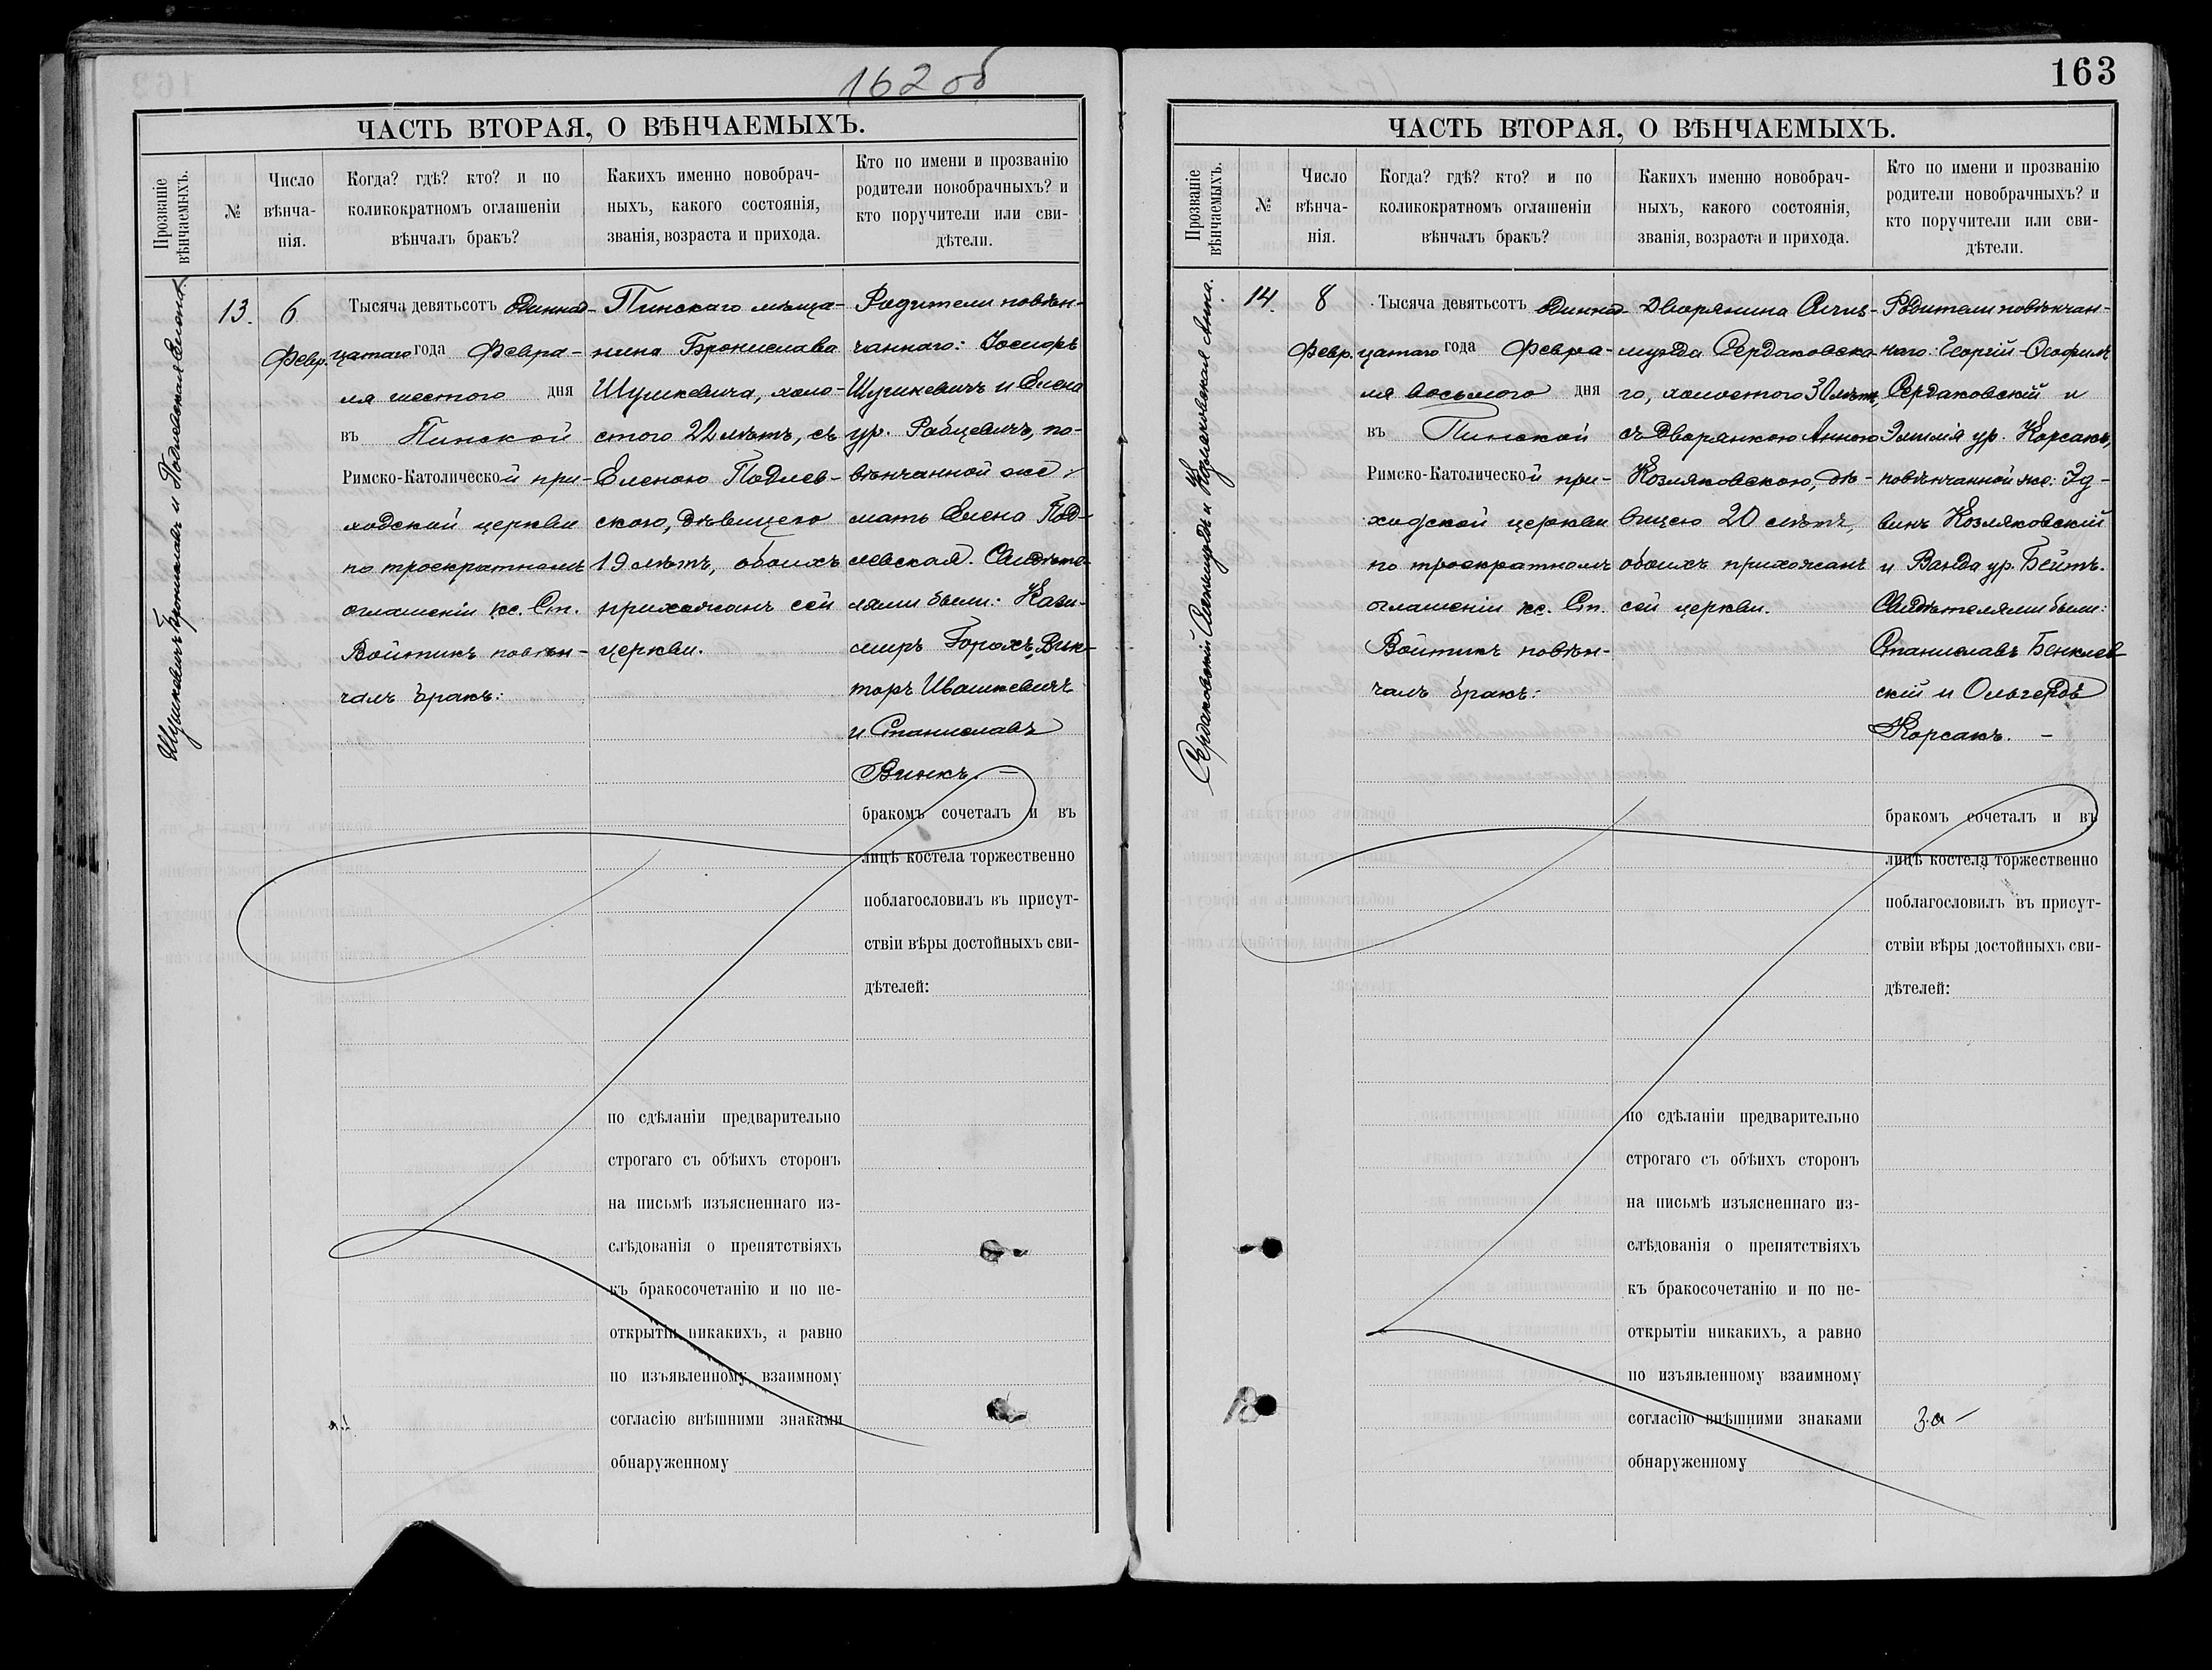 162 об
ЧАСТЬ ВТОРАЯ, О ВѢНЧАЕМЫХЪ.
Прозваніе вѣнчаемыхъ.
№
Число вѣнча-нія.
Когда? гдѣ? кто? и по
коликократномъ оглашеніи
вѣнчалъ бракъ?
Какихъ именно новобрач-
ныхъ, какого состоянія,
званія, возраста и прихода.
Кто по имени и прозванію
родители новобрачныхъ? и
кто поручители или сви-
дѣтели.
Шушкевичъ Брониславъ и Подлевская Елена.
13.
6
Февр.
Тысяча девятьсотъ одиннад-
цатаго года Февра-
ля шестого дня
въ Пинской
Римско-Католической при-
ходской церкви
по троекратномъ
оглашеніи кс. Ст.
Войтикъ повѣн-
чалъ бракъ:
Пинскаго мѣща-
нина Бронислава
Шушкевича, холо-
стого 22 лѣтъ, съ
Еленою Подлев-
скою, дѣвицею
19 лѣтъ, обоихъ
прихожанъ сей
церкви.
Родители повѣн-
чаннаго: Іосифъ
Шушкевичъ и Елена
ур. Рабцевичъ, по-
вѣнчанной же:
мать Елена Под-
левская. Свидѣте-
лями были: Кази-
миръ Горохъ, Вик-
торъ Ивашкевичъ
и Станиславъ
Винкъ. —
бракомъ сочеталъ и въ
лицѣ костела торжественно
поблагословилъ въ присут-
ствіи вѣры достойныхъ сви-
дѣтелей:
по сдѣланіи предварительно
строгаго съ обѣихъ сторонъ
на письмѣ изъясненнаго из-
слѣдованія о препятствіяхъ
къ бракосочетанію и по не-
открытіи никакихъ, а равно
по изъявленному взаимному
согласію внѣшними знаками
обнаруженному
163
ЧАСТЬ ВТОРАЯ, О ВѢНЧАЕМЫХЪ.
Прозваніе вѣнчаемыхъ.
№
Число вѣнча-нія.
Когда? гдѣ? кто? и по
коликократномъ оглашеніи
вѣнчалъ бракъ?
Какихъ именно новобрач-
ныхъ, какого состоянія,
званія, возраста и прихода.
Кто по имени и прозванію
родители новобрачныхъ? и
кто поручители или сви-
дѣтели.
Сердаковскій и Козляковская Анна.
14.
8
Февр.
Тысяча девятьсотъ одиннад-
цатаго года Февра-
ля восьмого дня
въ Пинской
Римско-Католической при-
ходской церкви
по троекратномъ
оглашеніи кс. Ст.
Войтикъ повѣн-
чалъ бракъ:
Дворянина
Сердаковска-
го, холостого 30 лѣтъ,
съ Дворянкою Анною
Козляковскою, дѣ-
вицею 20 лѣтъ,
обоихъ прихожанъ
сей церкви.
Родители повѣнчан-
наго: Георгій-Ѳеофилъ
Сердаковскій и
Эмилія ур. Корсакъ,
повѣнчанной же: Эд-
винъ Козляковскій
и Ванда ур. Бейтъ.
Свидѣтелями были:
Станиславъ Бенклев-
скій и Ольгердъ
Корсакъ. —
бракомъ сочеталъ и въ
лицѣ костела торжественно
поблагословилъ въ присут-
ствіи вѣры достойныхъ сви-
дѣтелей:
по сдѣланіи предварительно
строгаго съ обѣихъ сторонъ
на письмѣ изъясненнаго из-
слѣдованія о препятствіяхъ
къ бракосочетанію и по не-
открытіи никакихъ, а равно
по изъявленному взаимному
согласію внѣшними знаками
обнаруженному